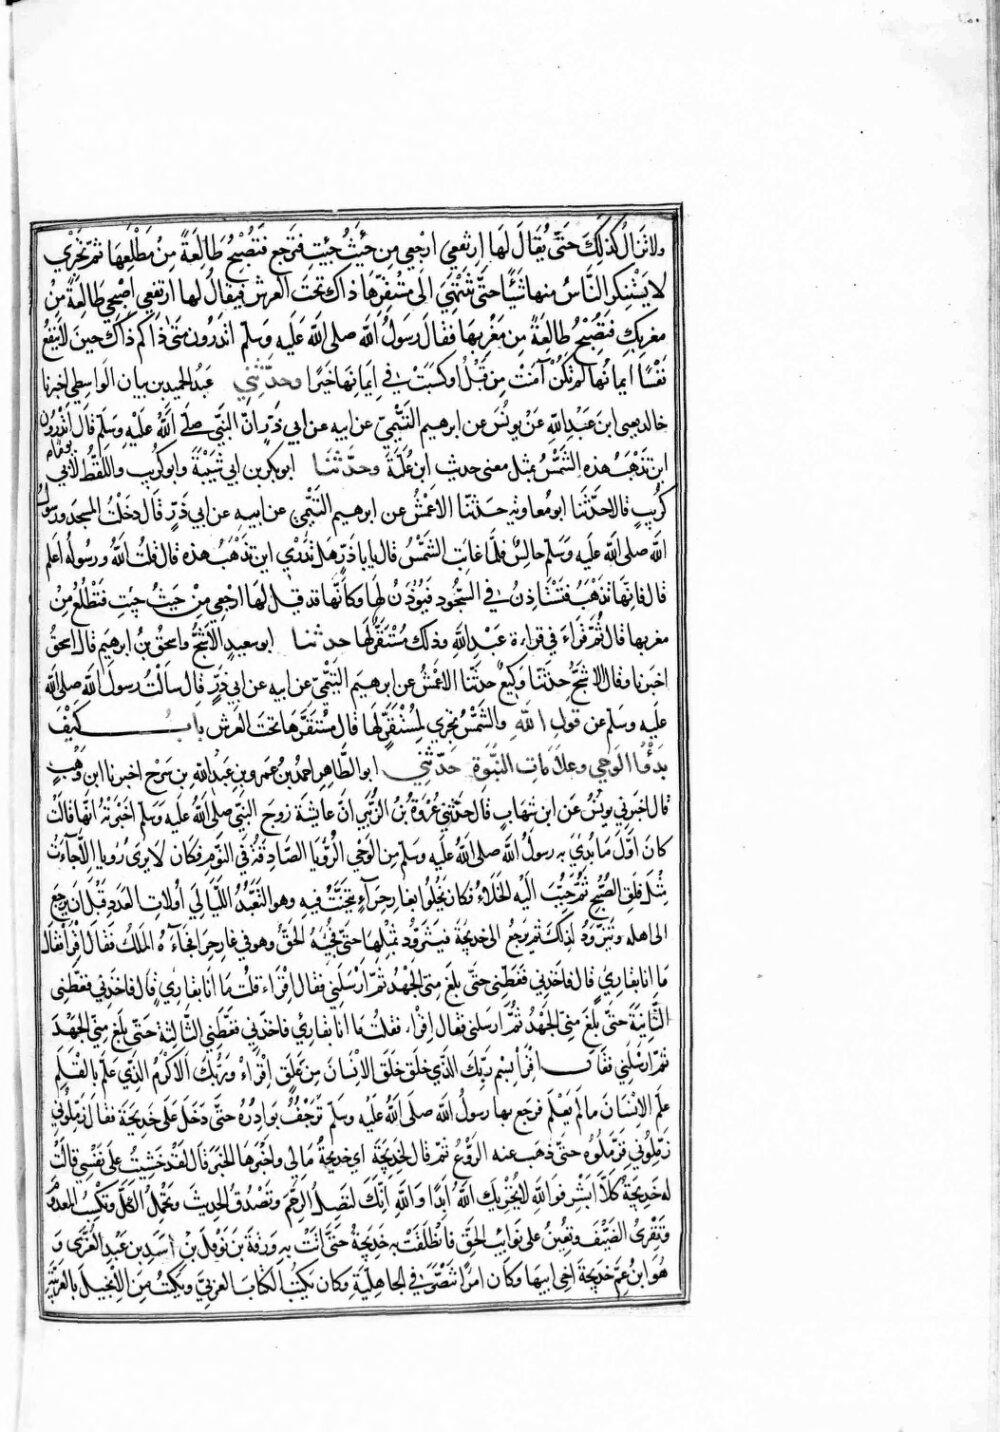 ولا تزال كذلك حتى يقال لها ارتفعي ارجعي من حيث جئت فترجع فتصبح طالعة من مطلعها ثم تجري
لا يستنكر الناس منها شيئا حتى تنتهي الى مستقرها ذاك تحت العرش فيقال لها ارتفعي اصبحي طالعة من
مغربك فتصبح طالعة من مغربها فقال رسول الله صلى الله عليه وسلم اتدرون متى ذاكم ذاك حين لا ينفع
نفسا ايمانها لم تكن آمنت من قبل او كسبت في ايمانها خيرا وحدثني عبد الحميد بن بيان الواسطي اخبرنا
خالد يعني ابن عبد الله عن يونس عن ابرهيم التيمي عن ابيه عن ابي ذر ان النبي صلى الله عليه وسلم قال اتدرون
اين تذهب هذه الشمس بمثل معنى حديث ابن علية وحدثنا ابو بكر بن ابي شيبة وابو كريب واللفظ لابي
كريب قالا حدثنا ابو معاوية حدثنا الاعمش عن ابرهيم التيمي عن ابيه عن ابي ذر قال دخلت المسجد ورسول
الله صلى الله عليه وسلم جالس فلما غابت الشمس قال يا با ذر هل تدري اين تذهب هذه قال قلت الله ورسوله اعلم
قال فانها تذهب فتستاذن في السجود فيؤذن لها وكانها قد قيل لها ارجعي من حيث جئت فتطلع من
مغربها قال ثم قراء في قراءة عبد الله وذلك مستقر لها حدثنا ابو سعيد الاشج واسحق بن ابرهيم قال اسحق
اخبرنا وقال الاشج حدثنا وكيع حدثنا الاعمش عن ابرهيم التيمي عن ابيه عن ابي ذر قال سالت رسول الله صلى الله
عليه وسلم عن قول الله والشمس تجري لمستقر لها قال مستقرها تحت العرش باب كيف
بدؤ الوحي وعلامات النبوة حدثني ابو الطاهر احمد بن عمرو بن عبد الله بن سرح اخبرنا ابن وهب
قال اخبرني يونس عن ابن شهاب قال حدثني عروة بن الزبير ان عايشة زوج النبي صلى الله عليه وسلم اخبرته انها قالت
كان اول ما بدئ به رسول الله صلى الله عليه وسلم من الوحي الرؤيا الصادقة في النوم فكان لا يرى رؤيا الا جاءت
مثل فلق الصبح ثم حبب اليه الخلاء فكان يخلوا بغار حراء يتحنث فيه وهو التعبد الليالي اولات العدد قبل ان يرجع
الى اهله ويتزود لذلك ثم يرجع الى خديجة فيتزود بمثلها حتى فجئه الحق وهو في غار حرا فجاءه الملك فقال اقرا فقال
ما انا بقارئ قال فاخذني فغطني حتى بلغ مني الجهد ثم ارسلني فقال اقراء قلت ما انا بقارئ قال فاخذني فغطني
الثانية حتى بلغ مني الجهد ثم ارسلني فقال اقراء فقلت ما انا بقارئ فاخذني فغطني الثالثة حتى بلغ مني الجهد
ثم ارسلني فقال اقرأ بسم ربك الذي خلق خلق الانسان من علق اقراء وربك الاكرم الذي علم بالقلم
علم الانسان ما لم يعلم فرجع بها رسول الله صلى الله عليه وسلم ترجف بوادره حتى دخل على خديجة فقال زملوني
زملوني فزملوه حتى ذهب عنه الروع ثم قال لخديجة اي خديجة مالي واخبرها الخبر قال لقد خشيت على نفسي قالت
له خديجة كلا ابشر فوالله لا يخزيك الله ابدا والله انك لتصل الرحم وتصدق الحديث وتحمل الكل وتكسب المعدوم
وتقري الضيف وتعين على نوايب الحق فانطلقت به خديجة حتى اتت به ورقة بن نوفل بن اسد بن عبد العزى و
هو ابن عم خديجة اخي ابيها وكان امرأ تنصر في الجاهلية وكان يكتب الكتاب العربي ويكتب من الانجيل بالعربية